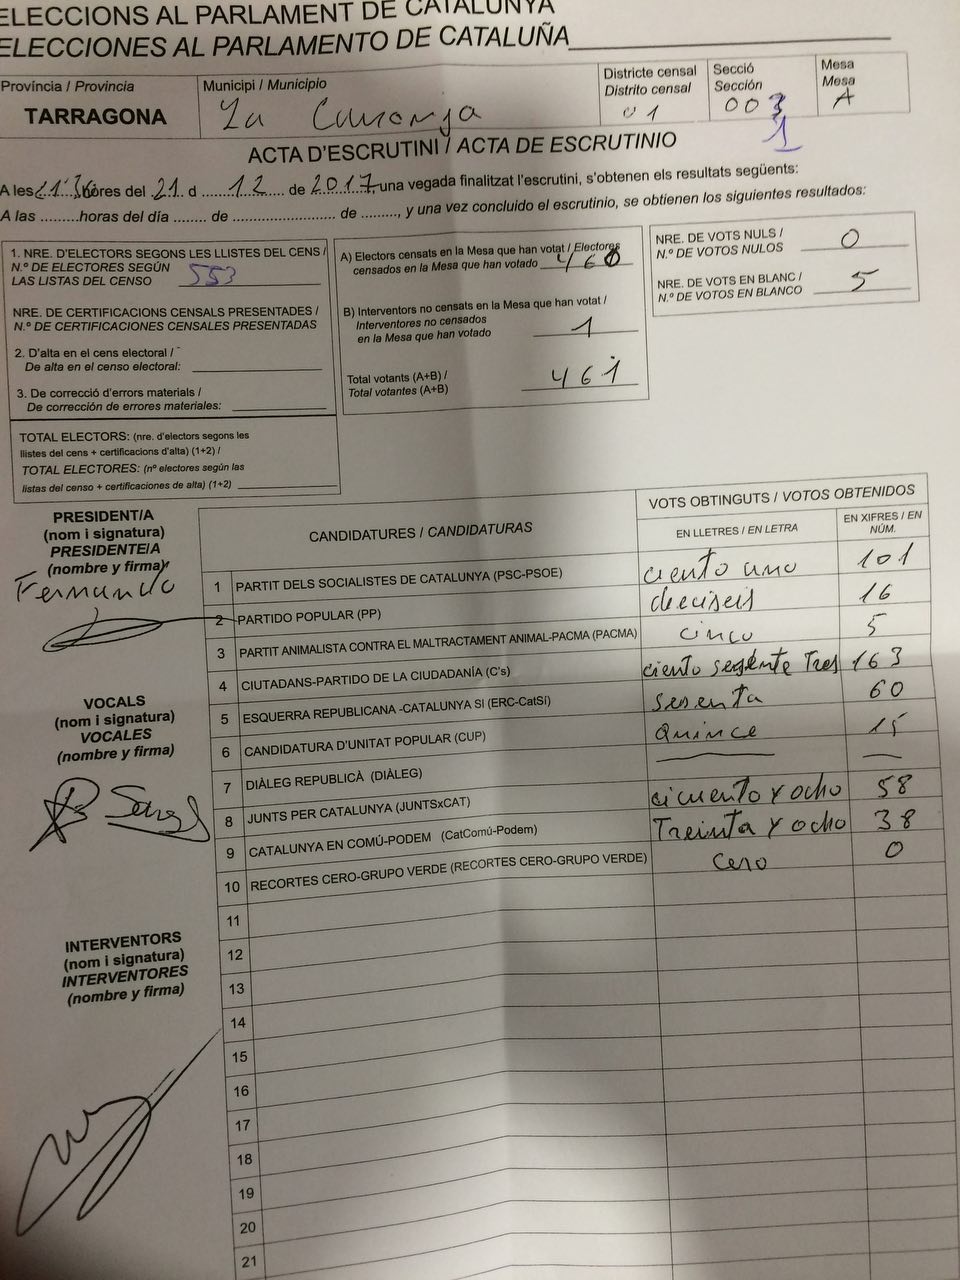 ELECCIONS AL PARLAMENT DE CATALUNYA
ELECCIONES AL PARLAMENTO DE CATALUÑA
Província / Provincia
TARRAGONA
Municipi / Municipio
La Canonja
Districte censal
Distrito censal
01
Secció
Sección
003
1
Mesa
Mesa
A
ACTA D'ESCRUTINI / ACTA DE ESCRUTINIO
A les 21'36 hores del 21 d 12 de 2017, una vegada finalitzat l'escrutini, s'obtenen els resultats següents:
A las ......... horas del día ........ de ....................... de ........., y una vez concluido el escrutinio, se obtienen los siguientes resultados:
1. NRE. D'ELECTORS SEGONS LES LLISTES DEL CENS /
N.º DE ELECTORES SEGÚN
LAS LISTAS DEL CENSO 553
NRE. DE CERTIFICACIONS CENSALS PRESENTADES /
N.º DE CERTIFICACIONES CENSALES PRESENTADAS
2. D'alta en el cens electoral /
De alta en el censo electoral:
3. De correcció d'errors materials /
De corrección de errores materiales:
TOTAL ELECTORS: (nre. d'electors segons les
llistes del cens + certificacions d'alta) (1+2) /
TOTAL ELECTORES: (nº electores según las
listas del censo + certificaciones de alta) (1+2)
A) Electors censats en la Mesa que han votat / Electores
censados en la Mesa que han votado 460
B) Interventors no censats en la Mesa que han votat /
Interventores no censados
en la Mesa que han votado 1
Total votants (A+B) /
Total votantes (A+B) 461
NRE. DE VOTS NULS /
N.º DE VOTOS NULOS 0
NRE. DE VOTS EN BLANC /
N.º DE VOTOS EN BLANCO 5
PRESIDENT/A
(nom i signatura)
PRESIDENTE/A
(nombre y firma)
Fernando
VOCALS
(nom i signatura)
VOCALES
(nombre y firma)
INTERVENTORS
(nom i signatura)
INTERVENTORES
(nombre y firma)
CANDIDATURES / CANDIDATURAS
VOTS OBTINGUTS / VOTOS OBTENIDOS
EN LLETRES / EN LETRA
EN XIFRES / EN
NÚM.
1 PARTIT DELS SOCIALISTES DE CATALUNYA (PSC-PSOE) ciento uno 101
2 PARTIDO POPULAR (PP) dieciseis 16
3 PARTIT ANIMALISTA CONTRA EL MALTRACTAMENT ANIMAL-PACMA (PACMA) cinco 5
4 CIUTADANS-PARTIDO DE LA CIUDADANÍA (C's) ciento Tres 163
5 ESQUERRA REPUBLICANA -CATALUNYA SI (ERC-CatSí) sesenta 60
6 CANDIDATURA D'UNITAT POPULAR (CUP) Quince 15
7 DIÀLEG REPUBLICÀ (DIÀLEG) — —
8 JUNTS PER CATALUNYA (JUNTSxCAT) y ocho 58
9 CATALUNYA EN COMÚ-PODEM (CatComú-Podem) Treinta y ocho 38
10 RECORTES CERO-GRUPO VERDE (RECORTES CERO-GRUPO VERDE) cero 0
11
12
13
14
15
16
17
18
19
20
21